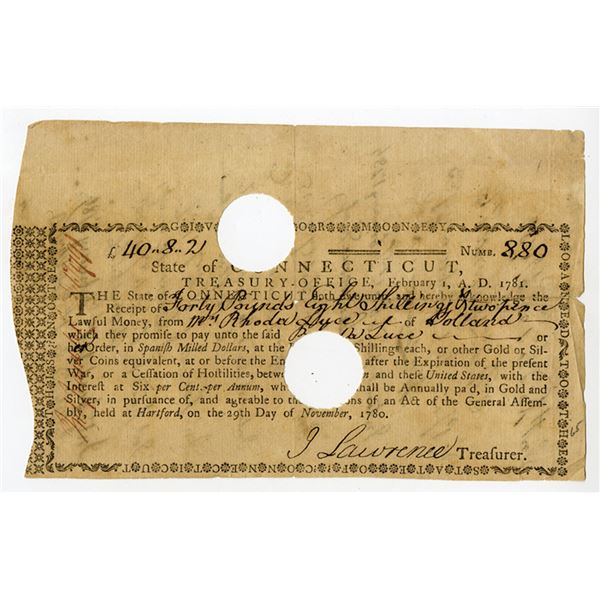 GIV OR MONEY
£ 40..8..2 NUMB. 880
State of CONNECTICUT,
TREASURY-OFFICE, February 1, A. D. 1781.
THE State of CONNECTICUT, doth and hereby acknowledge the
Receipt of Forty Pounds eight Shillings & twopence
Lawful Money, from Mrs Rhoda Luce of Tolland
which they promise to pay unto the said Luce or
her Order, in Spanish Milled Dollars, at the Shillings each, or other Gold or Sil-
ver Coins equivalent, at or before the En after the Expiration of the present
War, or a Cessation of Hostilities, betwe n and these United States, with the
Interest at Six per Cent. per Annum, wh hall be Annually paid, in Gold and
Silver, in pursuance of, and agreeable to ons of an Act of the General Assem-
bly, held at Hartford, on the 29th Day of November, 1780.
J Lawrence Treasurer.
OANED TO THE
STATE OF CONNECTICUT